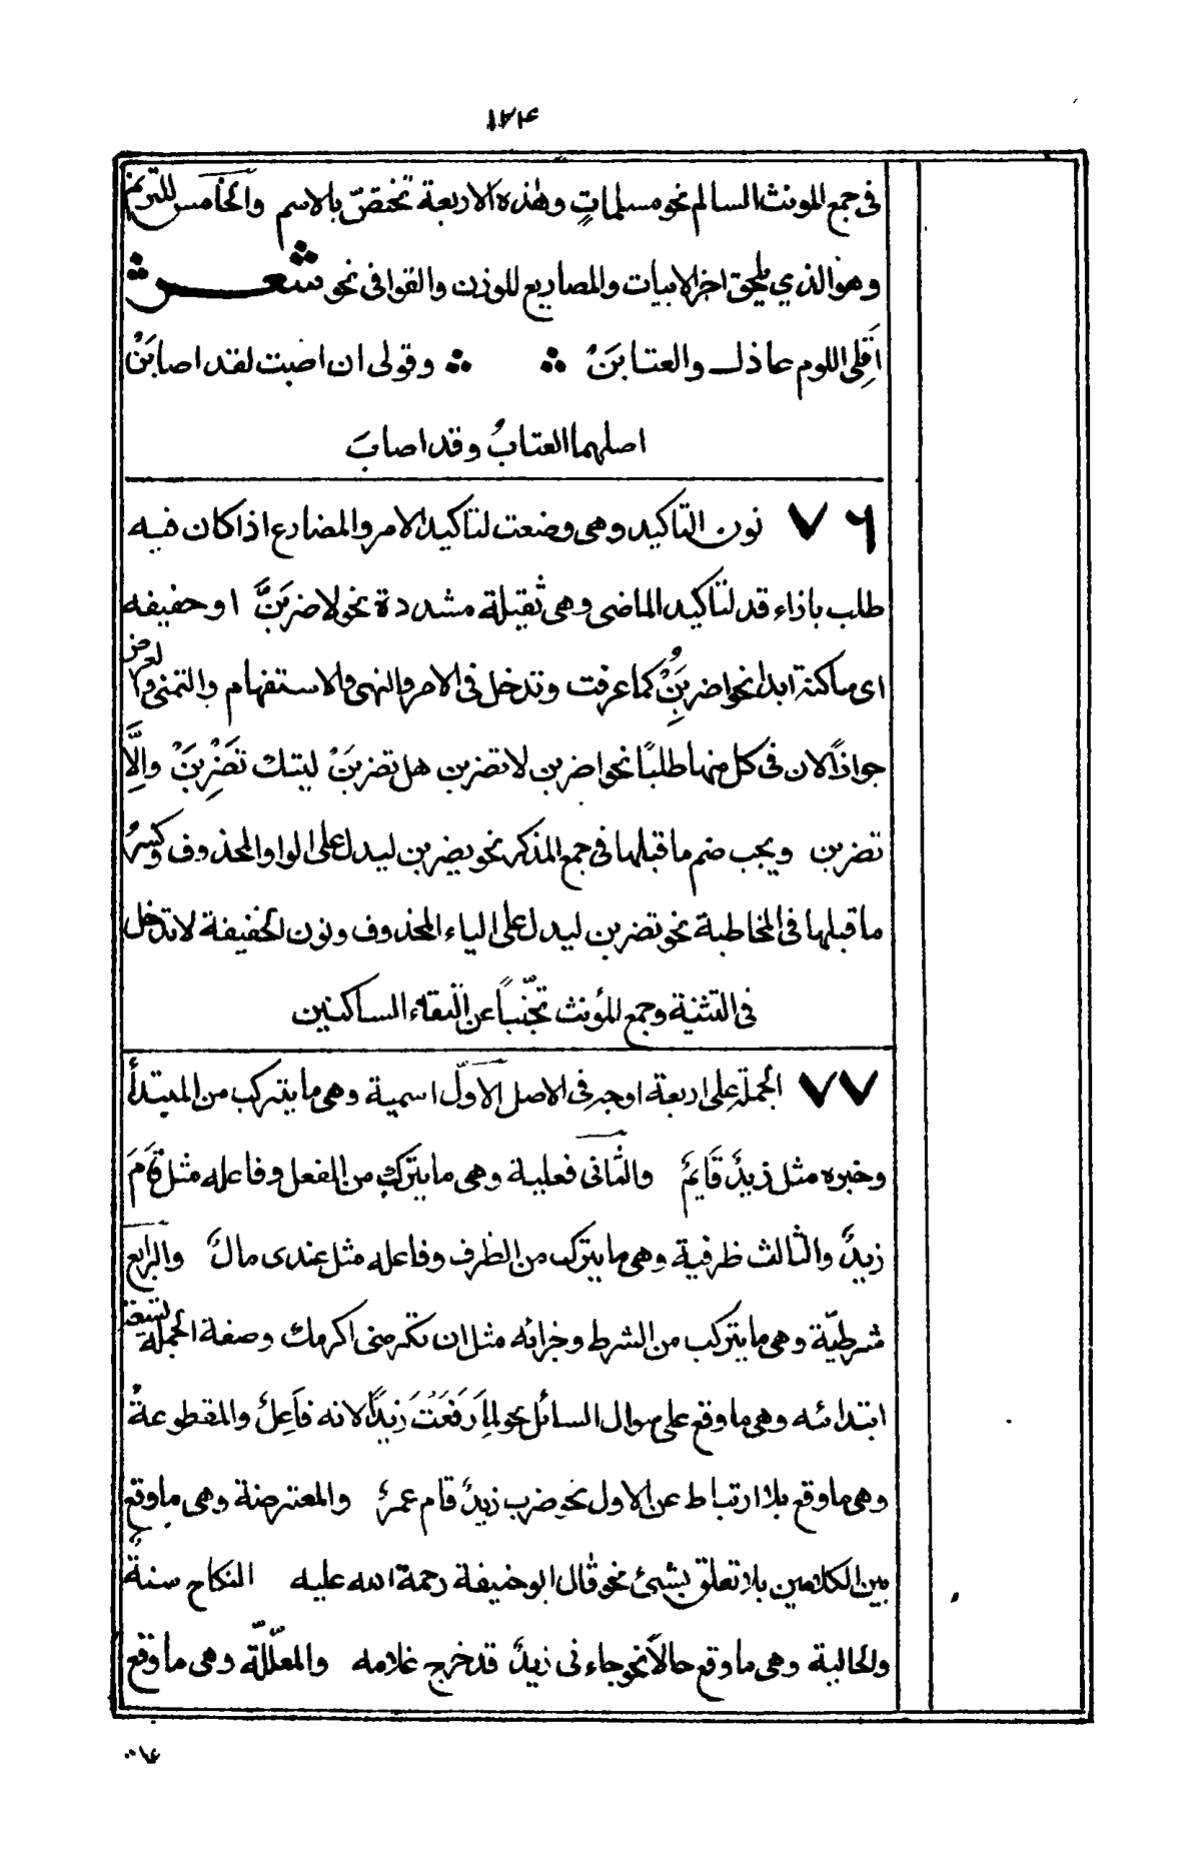 ١٧٤
فى جمع المونث السالم نحو مسلماتٍ وهذه الاربعة تختصّ بالاسم والخامس للترنم
وهو الذي يلحق اخر الابيات والمصاريع للوزن والقوافى نحو شعر
اَقِلى اللوم عاذل والعتابَنْ وقولى ان اصبت لقد اصابَنْ
اصلهما العتابُ وقد اصابَ
٧٦ نون التاكيد وهى وضعت لتاكيد الامر والمضارع اذا كان فيه
طلب بازاء قد لتاكيد الماضى وهى ثقيلة مشددة نحو لاضربَنَّ او خفيفه
اى ساكنة ابدا نحو اضربُِنْ كما عرفت وتدخل فى الامر والنهى والاستفهام والتمنى والعرض
جوازاً لان فى كل منها طلبًا نحو اضربن لا تضربن هل تضربَنْ ليتك تَضْرِبَنْ واِلَّا
تضربن ويجب ضم ما قبلها فى جمع المذكر نحو يضربن ليدل على الواو المحذوف وكسرُ
ما قبلها فى المخاطبة نحو تضربن ليدل على الياء المحذوف ونون الخفيفة لا تدخل
فى التثنية وجمع المؤنث تجنّباً عن التقاء الساكنين
٧٧ الجملة على اربعة اوجه فى الاصل الاَوّل اسمية وهى ما يتركب من المبتدأ
وخبره مثل زيدٌ قَايمٌ والثانى فعلية وهى ما يتركب من الفعل وفاعله مثل قَامَ
زيدٌ والثالث ظرفية وهى ما يتركب من الظرف وفاعله مثل عندى مالٌ والرابع
شرطيّة وهى ما يتركب من الشرط وجزائه مثل ان تكرمنى اكرمك وصفة الجملة تسعة
ابتدائه وهى ما وقع على سوال السائل نحو لِمَ رَفَعْتَ زيدًا لانه فَاعِلٌ والمقطوعةُ
وهى ما وقع بلا ارتباط عن الاول نحو ضرب زيدٌ قام عمرٌ والمعترضة وهى ما وقع
بين الكلامين بلا تعلق بشئ نحو قال ابو حنيفة رحمة الله عليه النكاح سنةٌ
والحالية وهى ما وقع حالاً نحو جاءنى زيدٌ قد خرج غلامه والمعلّلة وهى ما وقع